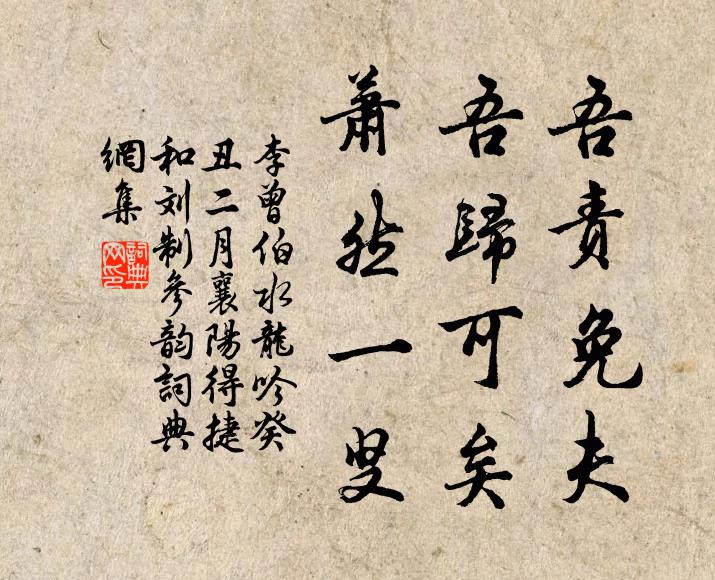 吾责免夫
吾歸可矣
蕭然一叟
李曾伯水龍吟癸
丑二月襄陽得捷
和刘制參韵詞典
網集
詞典
网印